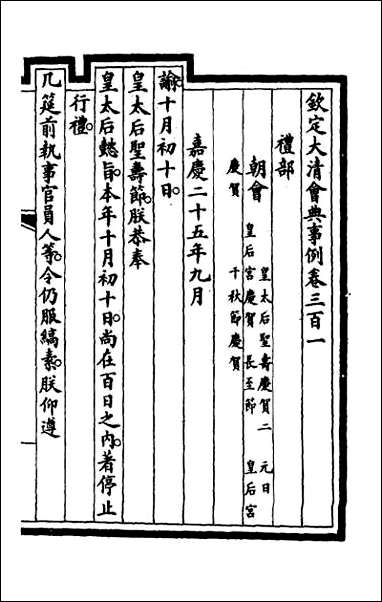 欽定大清會典事例卷三百一
禮部
朝會 皇太后聖壽慶賀二 元日
皇后宮慶賀 長至節 皇后宮
慶賀 千秋節慶賀
嘉慶二十五年九月
諭十月初十日。
皇太后聖壽節。朕恭奉
皇太后懿旨。本年十月初十日。尚在百日之內。著停止
行禮。
几筵前執事官員人等。令仍服縞素。朕仰遵